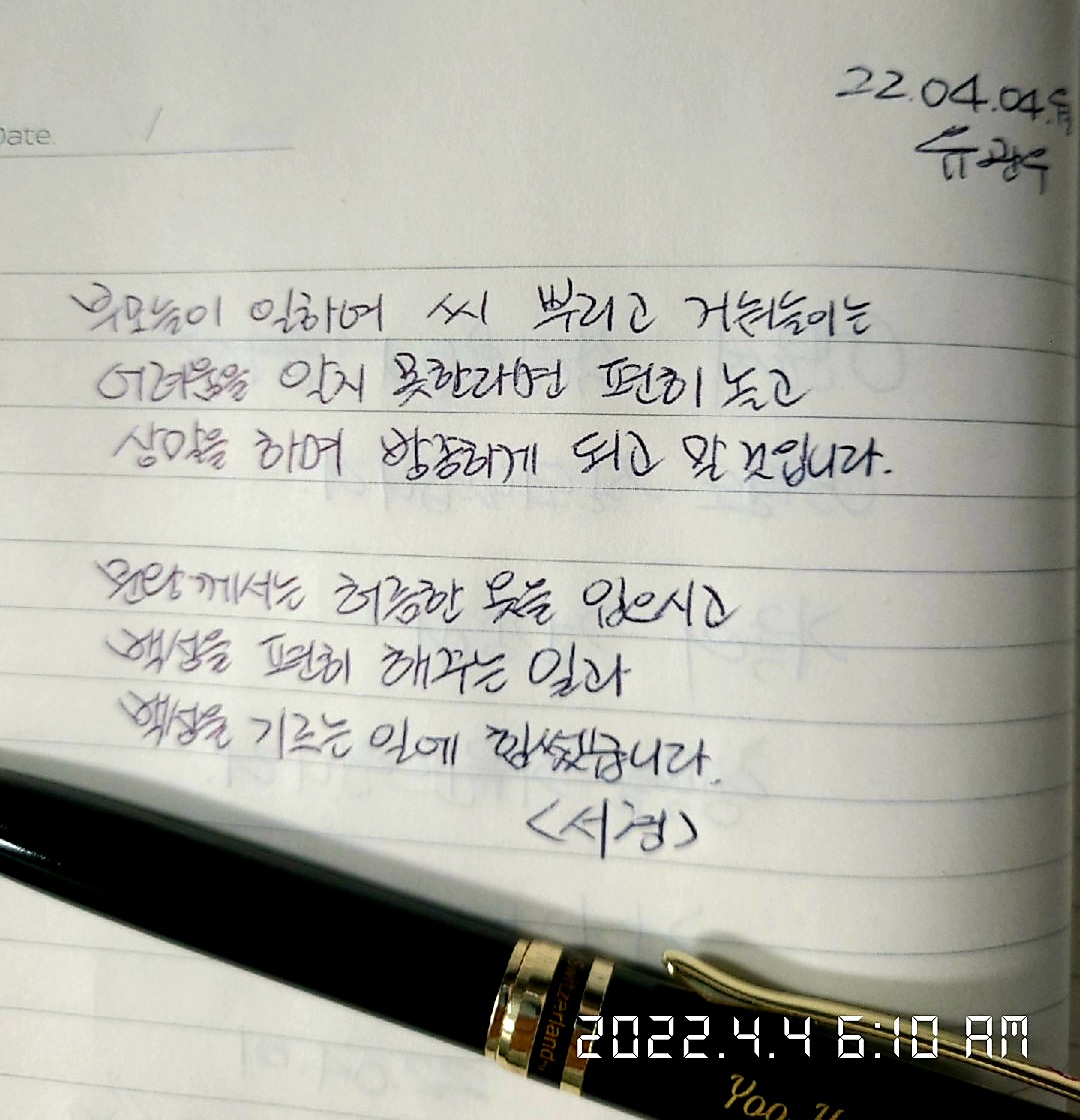 Date. /
22.04.04.月
유광수
부모님이 일하여 씨 뿌리고 거둬들이는
어려움을 알지 못한다면 편히 놀고
상말을 하며 방종하게 되고 말 것입니다.
문왕께서는 허름한 옷을 입으시고
백성을 편히 해주는 일과
백성을 기르는 일에 힘썼습니다.
<서경>
Switzerland
2022.4.4 6:10 AM
Yoo